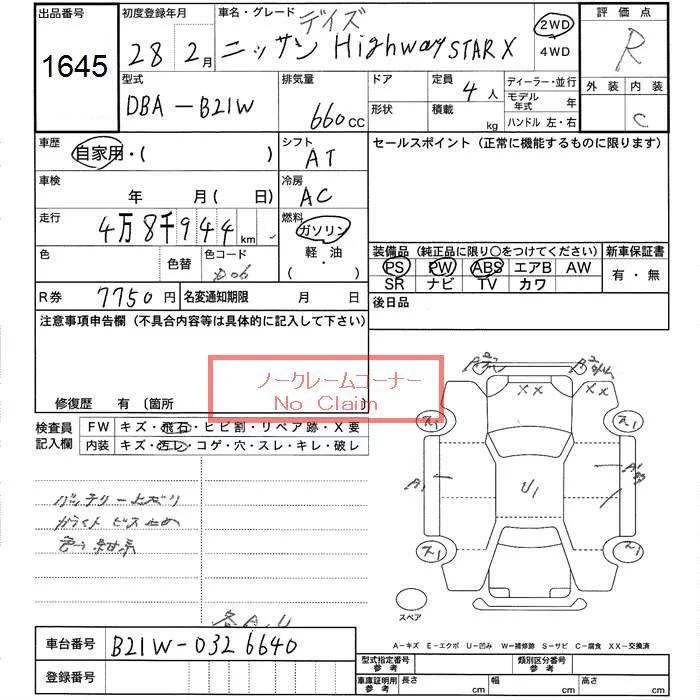 出品番号 初度登録年月 車名・グレード 評価点
デイズ
1645 28年 2月 ニッサン Highway STAR X 2WD R
4WD
型式 排気量 ドア 定員 ディーラー・並行 外装 内装
DBA-B21W 660cc 4人 モデル年式 年 C
形状 積載 kg ハンドル 左・右
車歴 シフト セールスポイント(正常に機能するものに限ります)
自家用・( ) AT
車検 冷房
年 月(日) AC
走行 燃料
4万8千944km ガソリン
色 色替 色コード 軽・油 装備品(純正品に限り〇をつけてください) 新車保証書
( ) PS PW ABS エアB AW 有・無
SR ナビ TV カワ
R券 7750円 名変通知期限 月 日 後日品
注意事項申告欄(不具合内容等は具体的に記入して下さい)
ノークレームコーナー
No Claim
修復歴 有〔箇所 〕
検査員記入欄 FW キズ・飛石・ヒビ割・リペア跡・X要
内装 キズ・汚レ・コゲ・穴・スレ・キレ・破レ
XX XX
ス1 ス1
A1
U1
ス1 ス1
バッテリー上ガリ
スペア
各A.U
A-キズ E-エクボ U-凹み W-補修跡 S-サビ C-腐食 XX-交換済
車台番号 B21W-0326640
型式指定番号 参考 類別区分番号 参考
登録番号
車庫証明用 参考 長さ cm 幅 cm 高さ cm